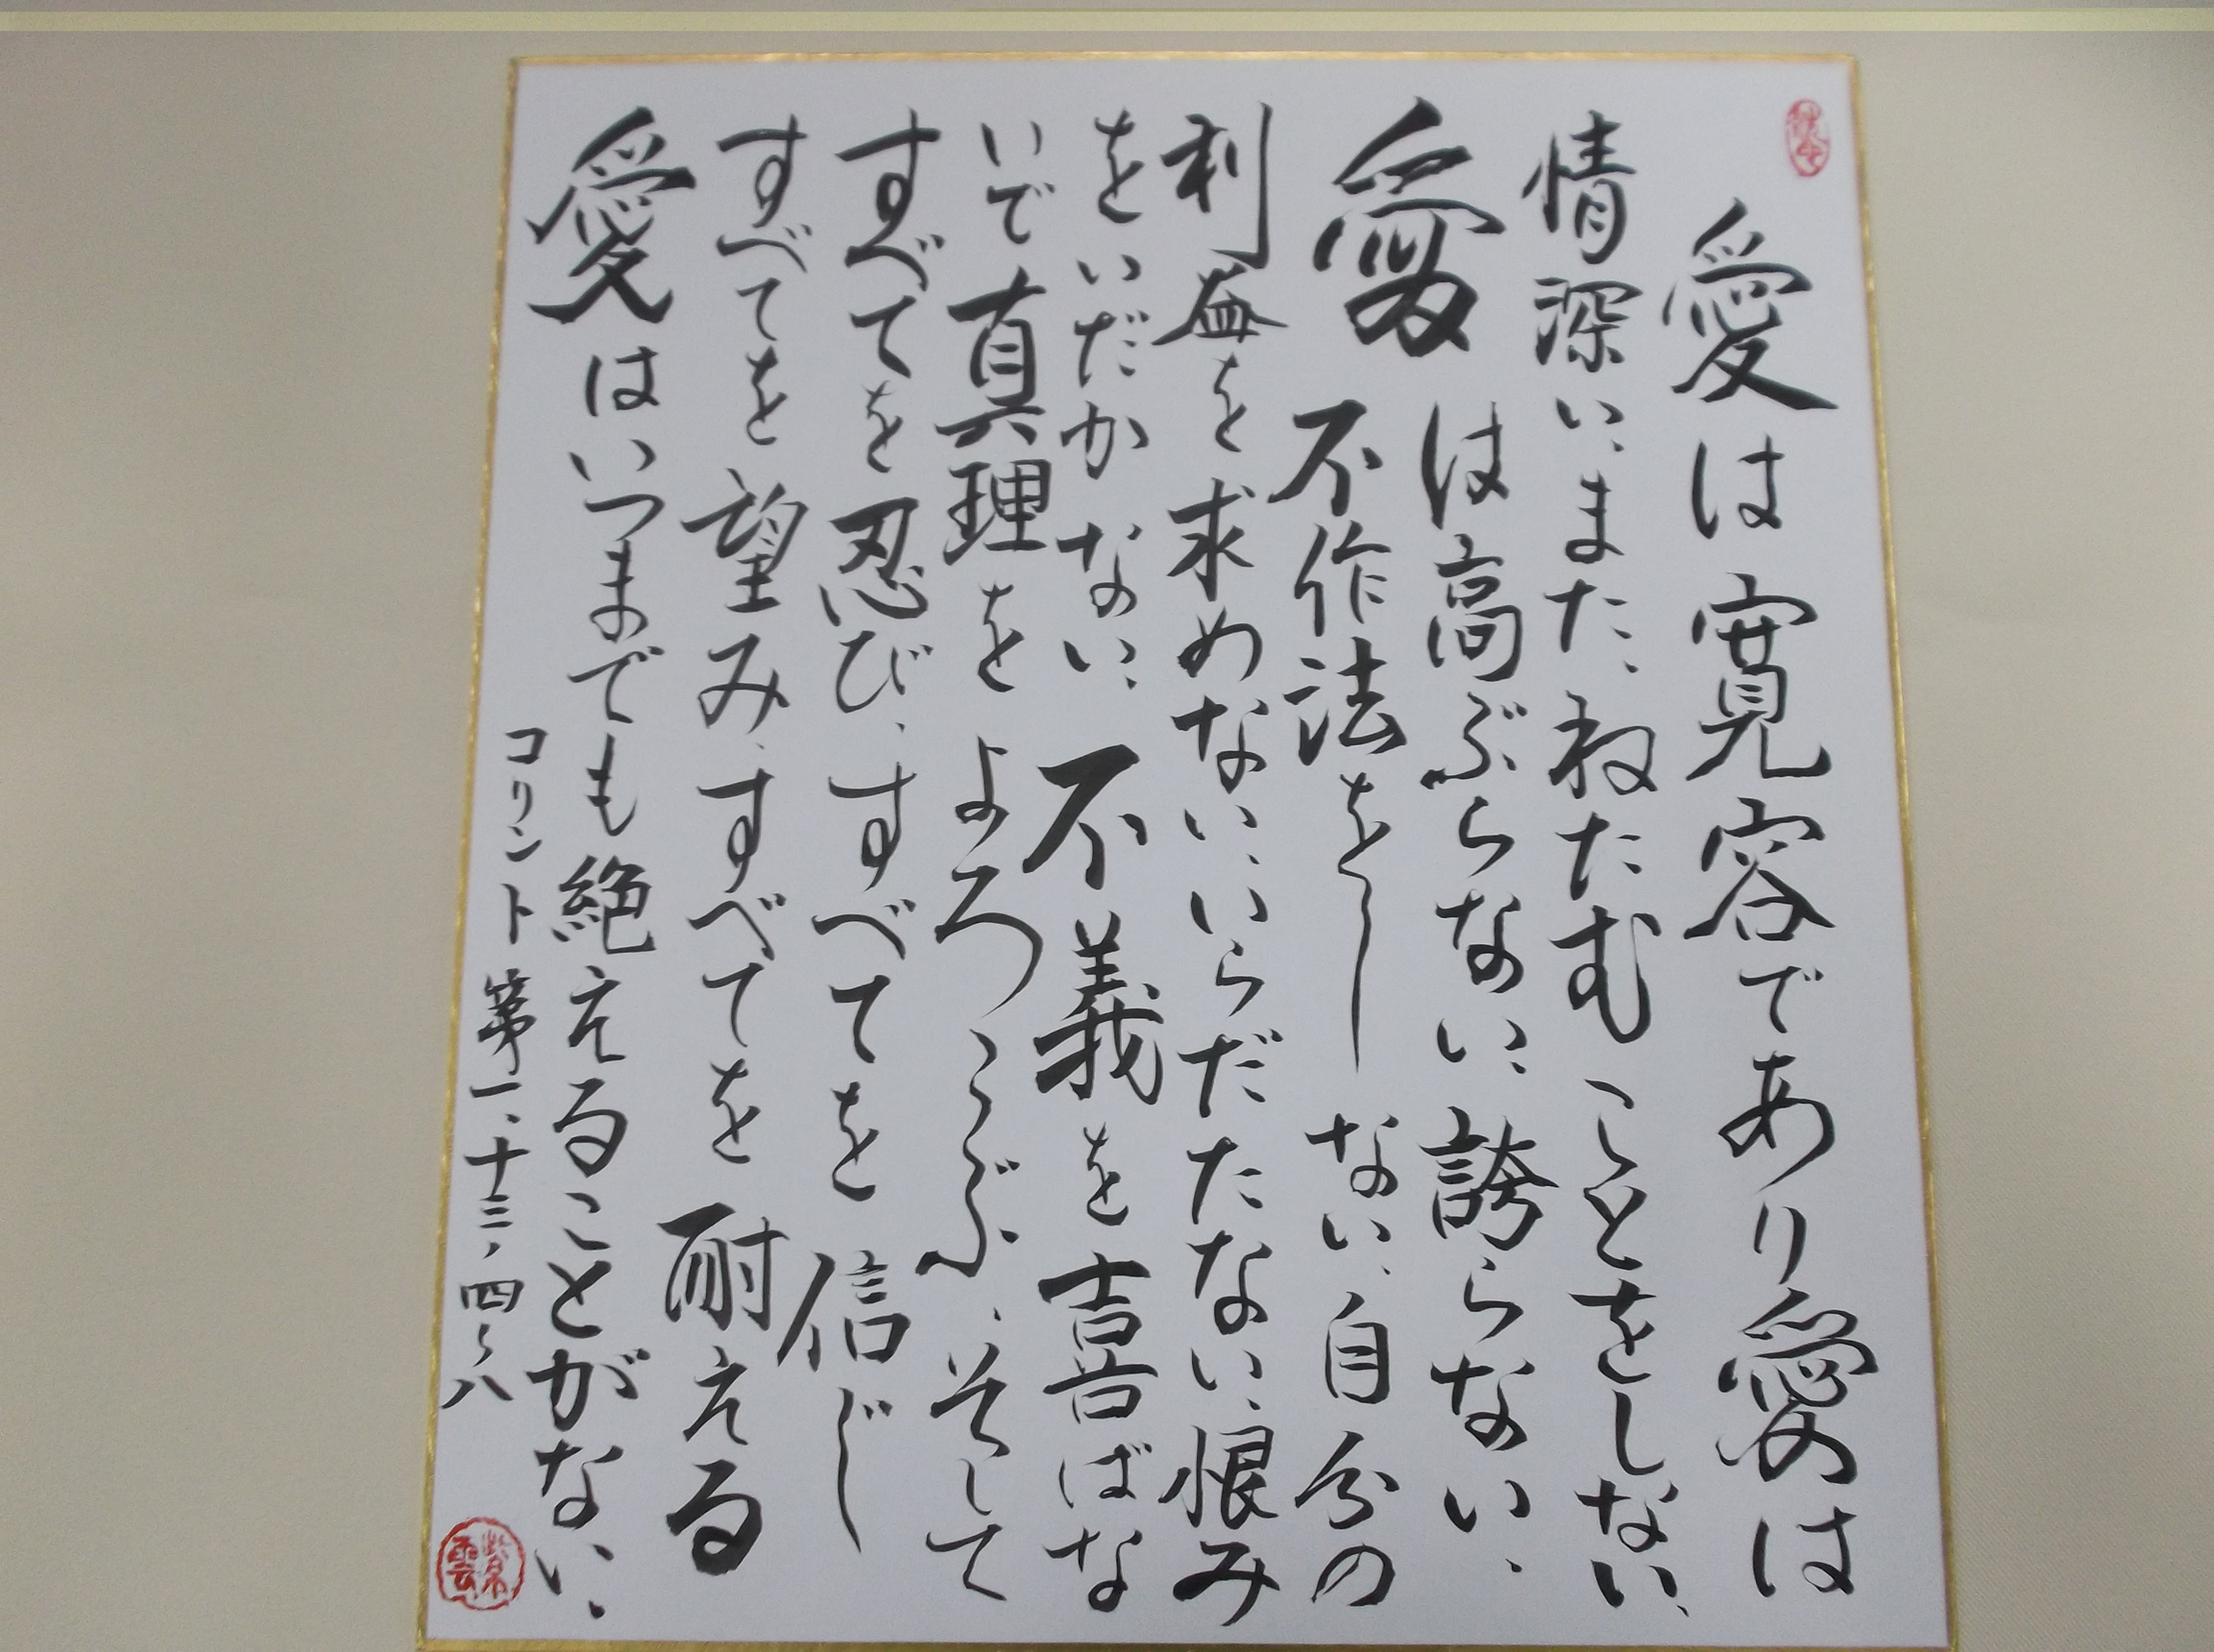 愛は寛容であり愛は
情深い、また、ねたむことをしない、
愛は高ぶらない、誇らない、
不作法をしない、自分の
利益を求めない、いらだたない、恨み
をいだかない、不義を喜ばな
いで真理をよろこぶ、そして
すべてを忍び、すべてを信じ
すべてを望み、すべてを耐える
愛はいつまでも絶えることがない、
コリント第一、十三、四〜八
紫雲